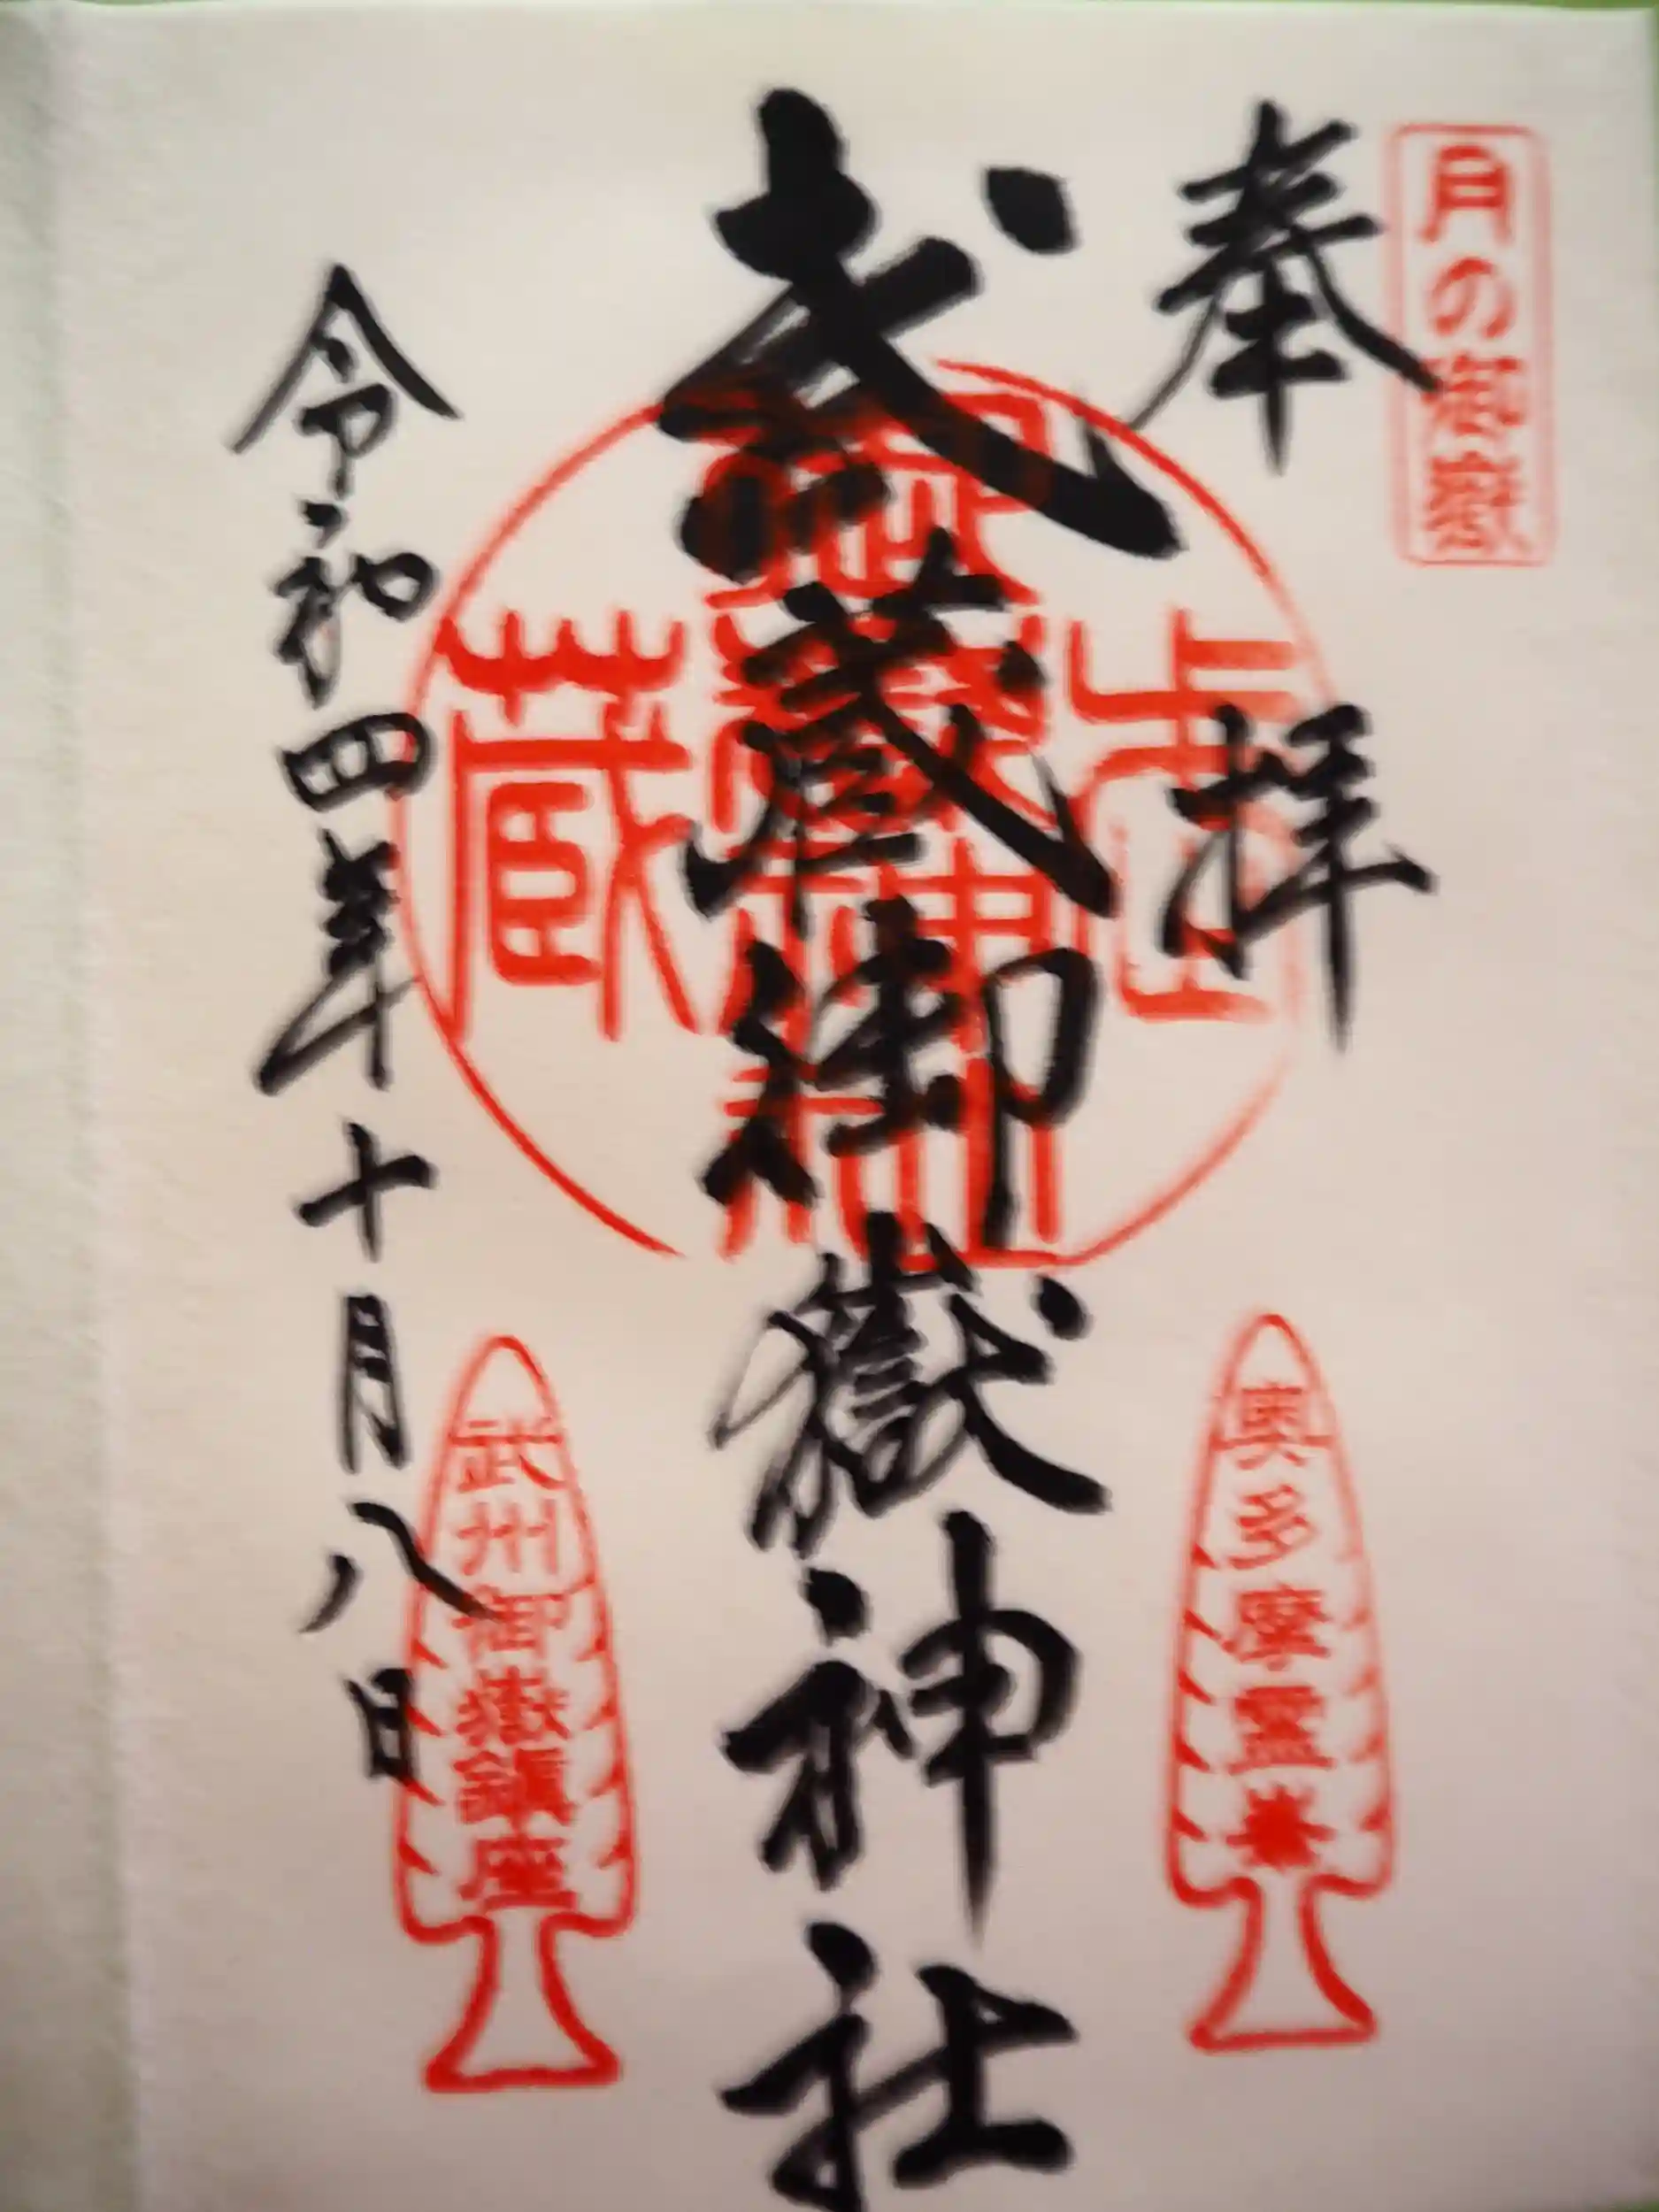 月の御嶽
奉拝
武蔵御嶽神社
令和四年十月八日
奥多摩霊峯
武州御嶽鎮座